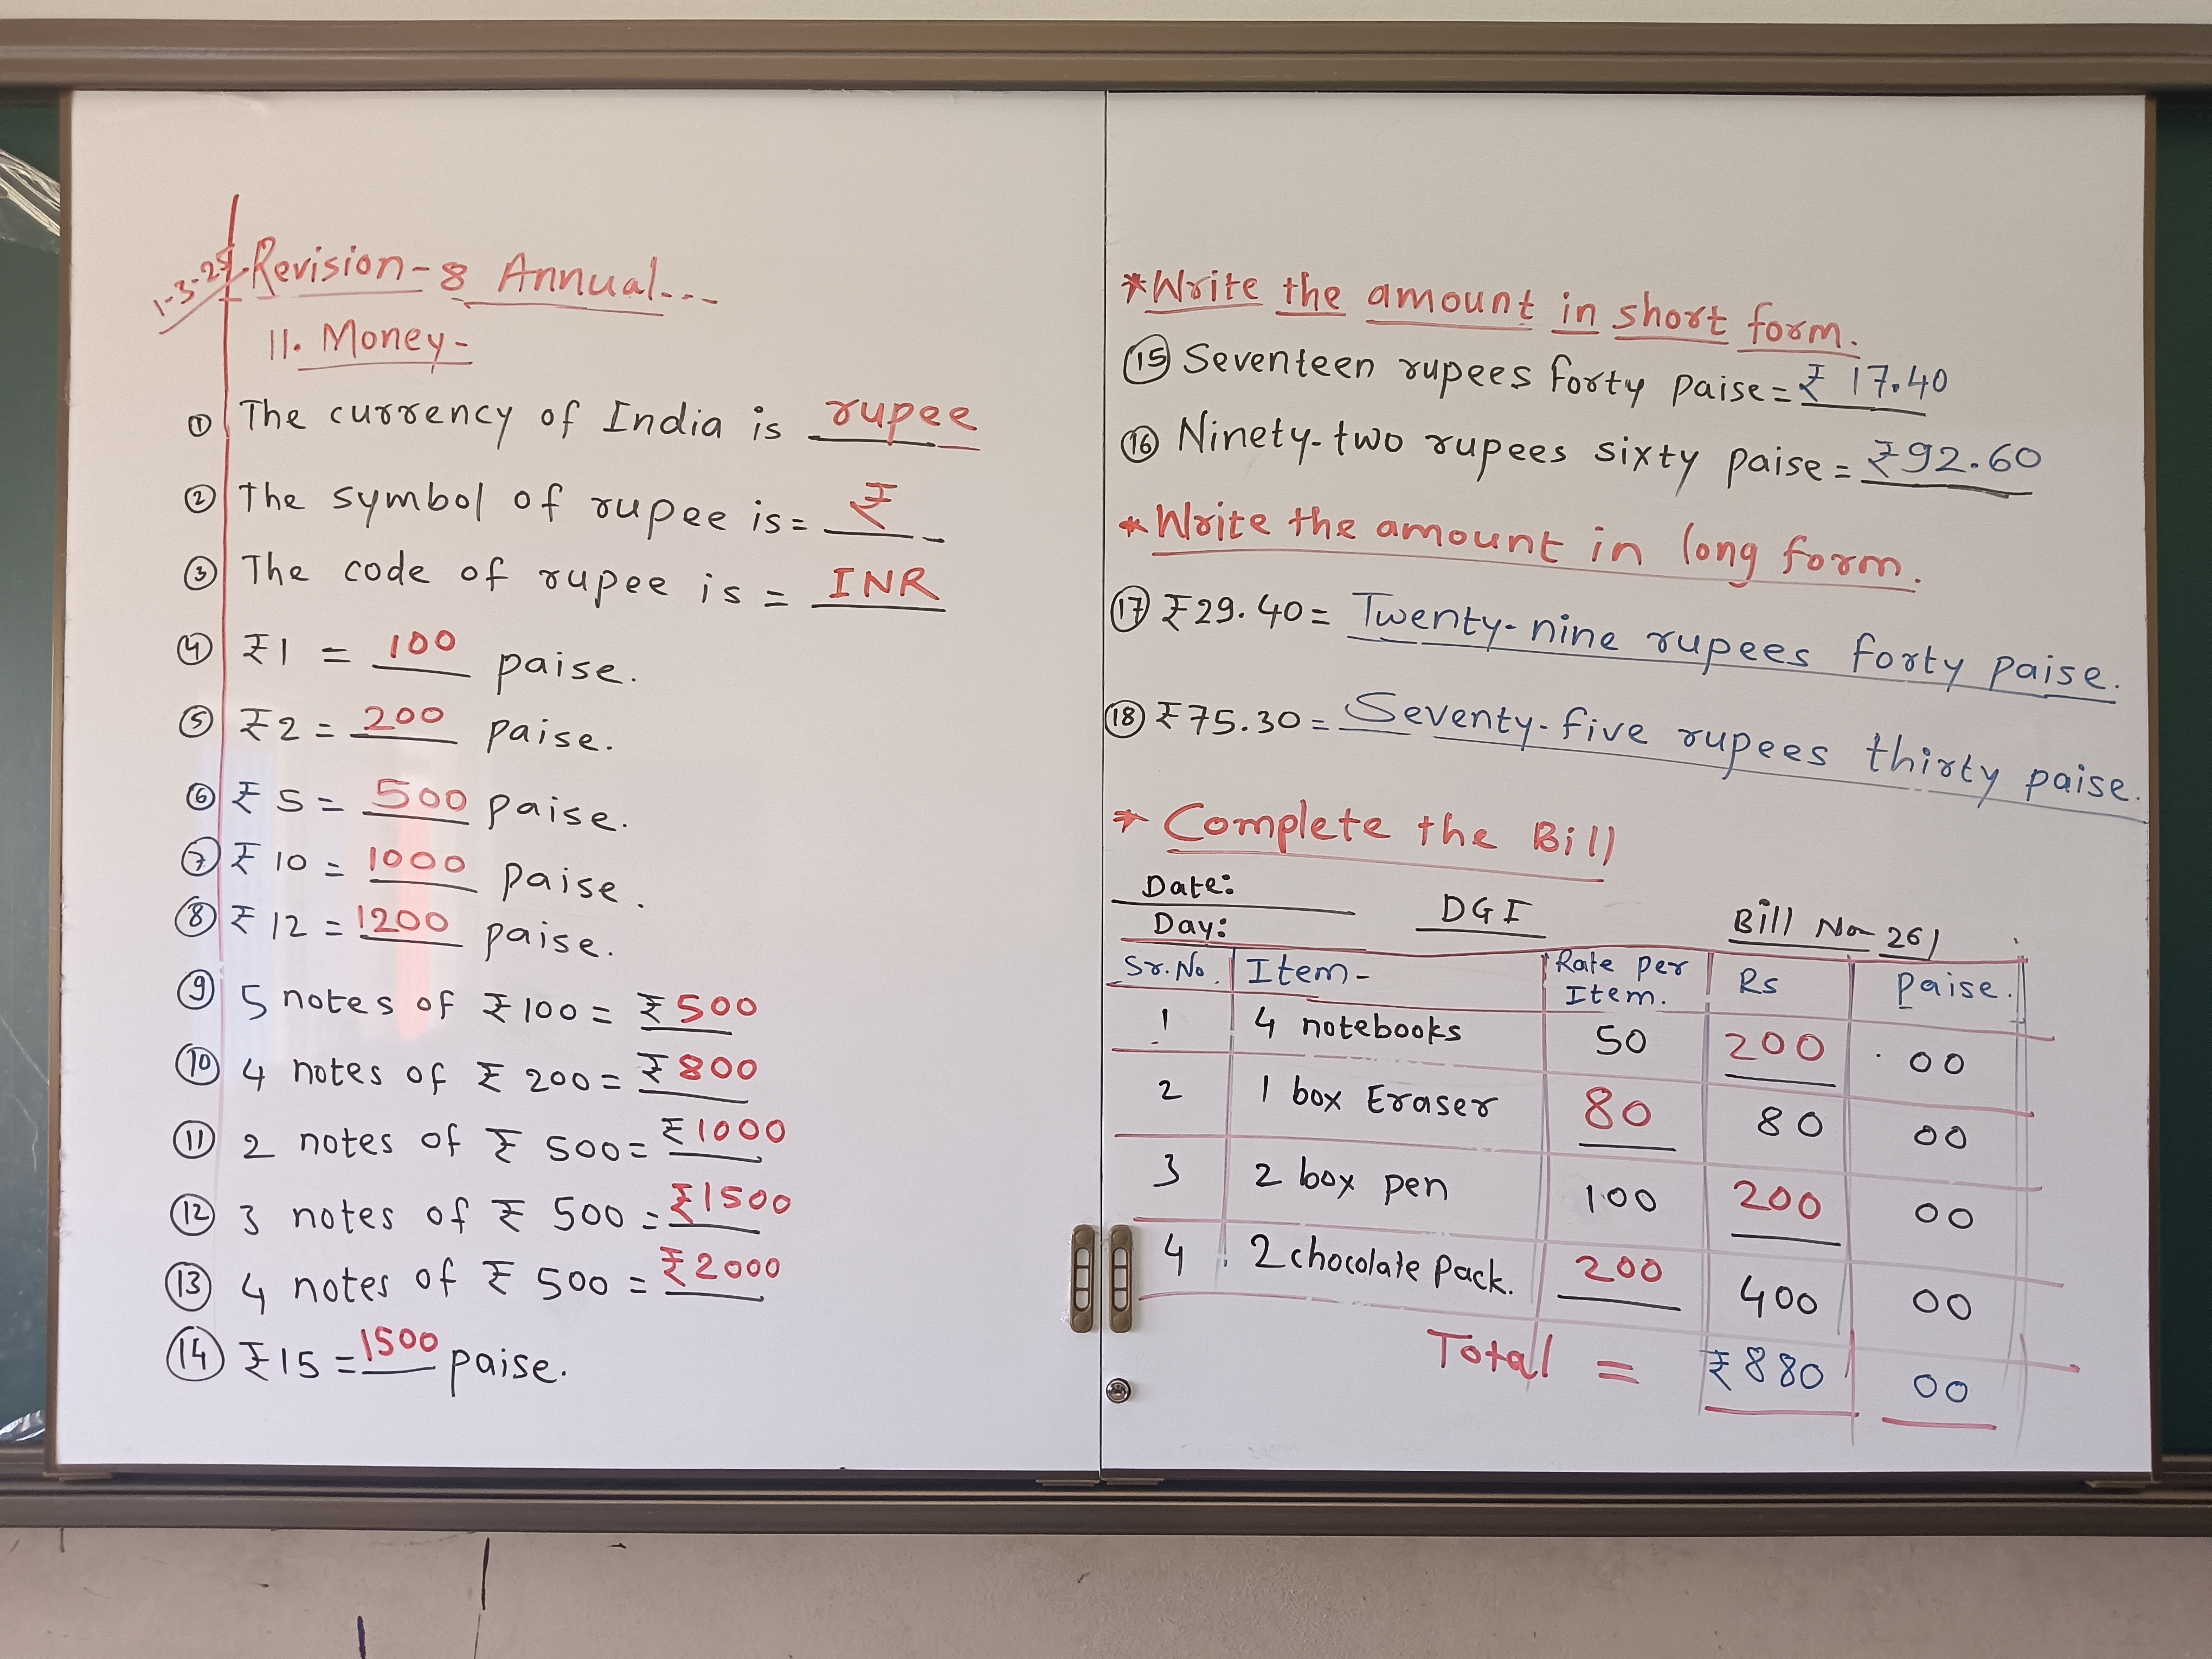 1-3-25. Revision-8 Annual...
11. Money-
① The currency of India is rupee
② The symbol of rupee is = ₹
③ The code of rupee is = INR
④ ₹1 = 100 paise.
⑤ ₹2 = 200 paise.
⑥ ₹5 = 500 paise.
⑦ ₹10 = 1000 paise.
⑧ ₹12 = 1200 paise.
⑨ 5 notes of ₹100 = ₹500
⑩ 4 notes of ₹200 = ₹800
⑪ 2 notes of ₹500 = ₹1000
⑫ 3 notes of ₹500 = ₹1500
⑬ 4 notes of ₹500 = ₹2000
⑭ ₹15 = 1500 paise.
*Write the amount in short form.
⑮ Seventeen rupees forty paise = ₹17.40
⑯ Ninety-two rupees sixty paise = ₹92.60
*Write the amount in long form.
⑰ ₹29.40 = Twenty-nine rupees forty paise.
⑱ ₹75.30 = Seventy-five rupees thirty paise.
* Complete the Bill
Date:
Day: DGI Bill No 261
Sr.No. Item- Rate per Item. Rs Paise.
1 4 notebooks 50 200 00
2 1 box Eraser 80 80 00
3 2 box pen 100 200 00
4 2 chocolate Pack. 200 400 00
Total = ₹880 00